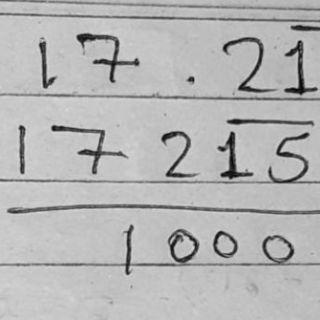 17.21
17215
1000